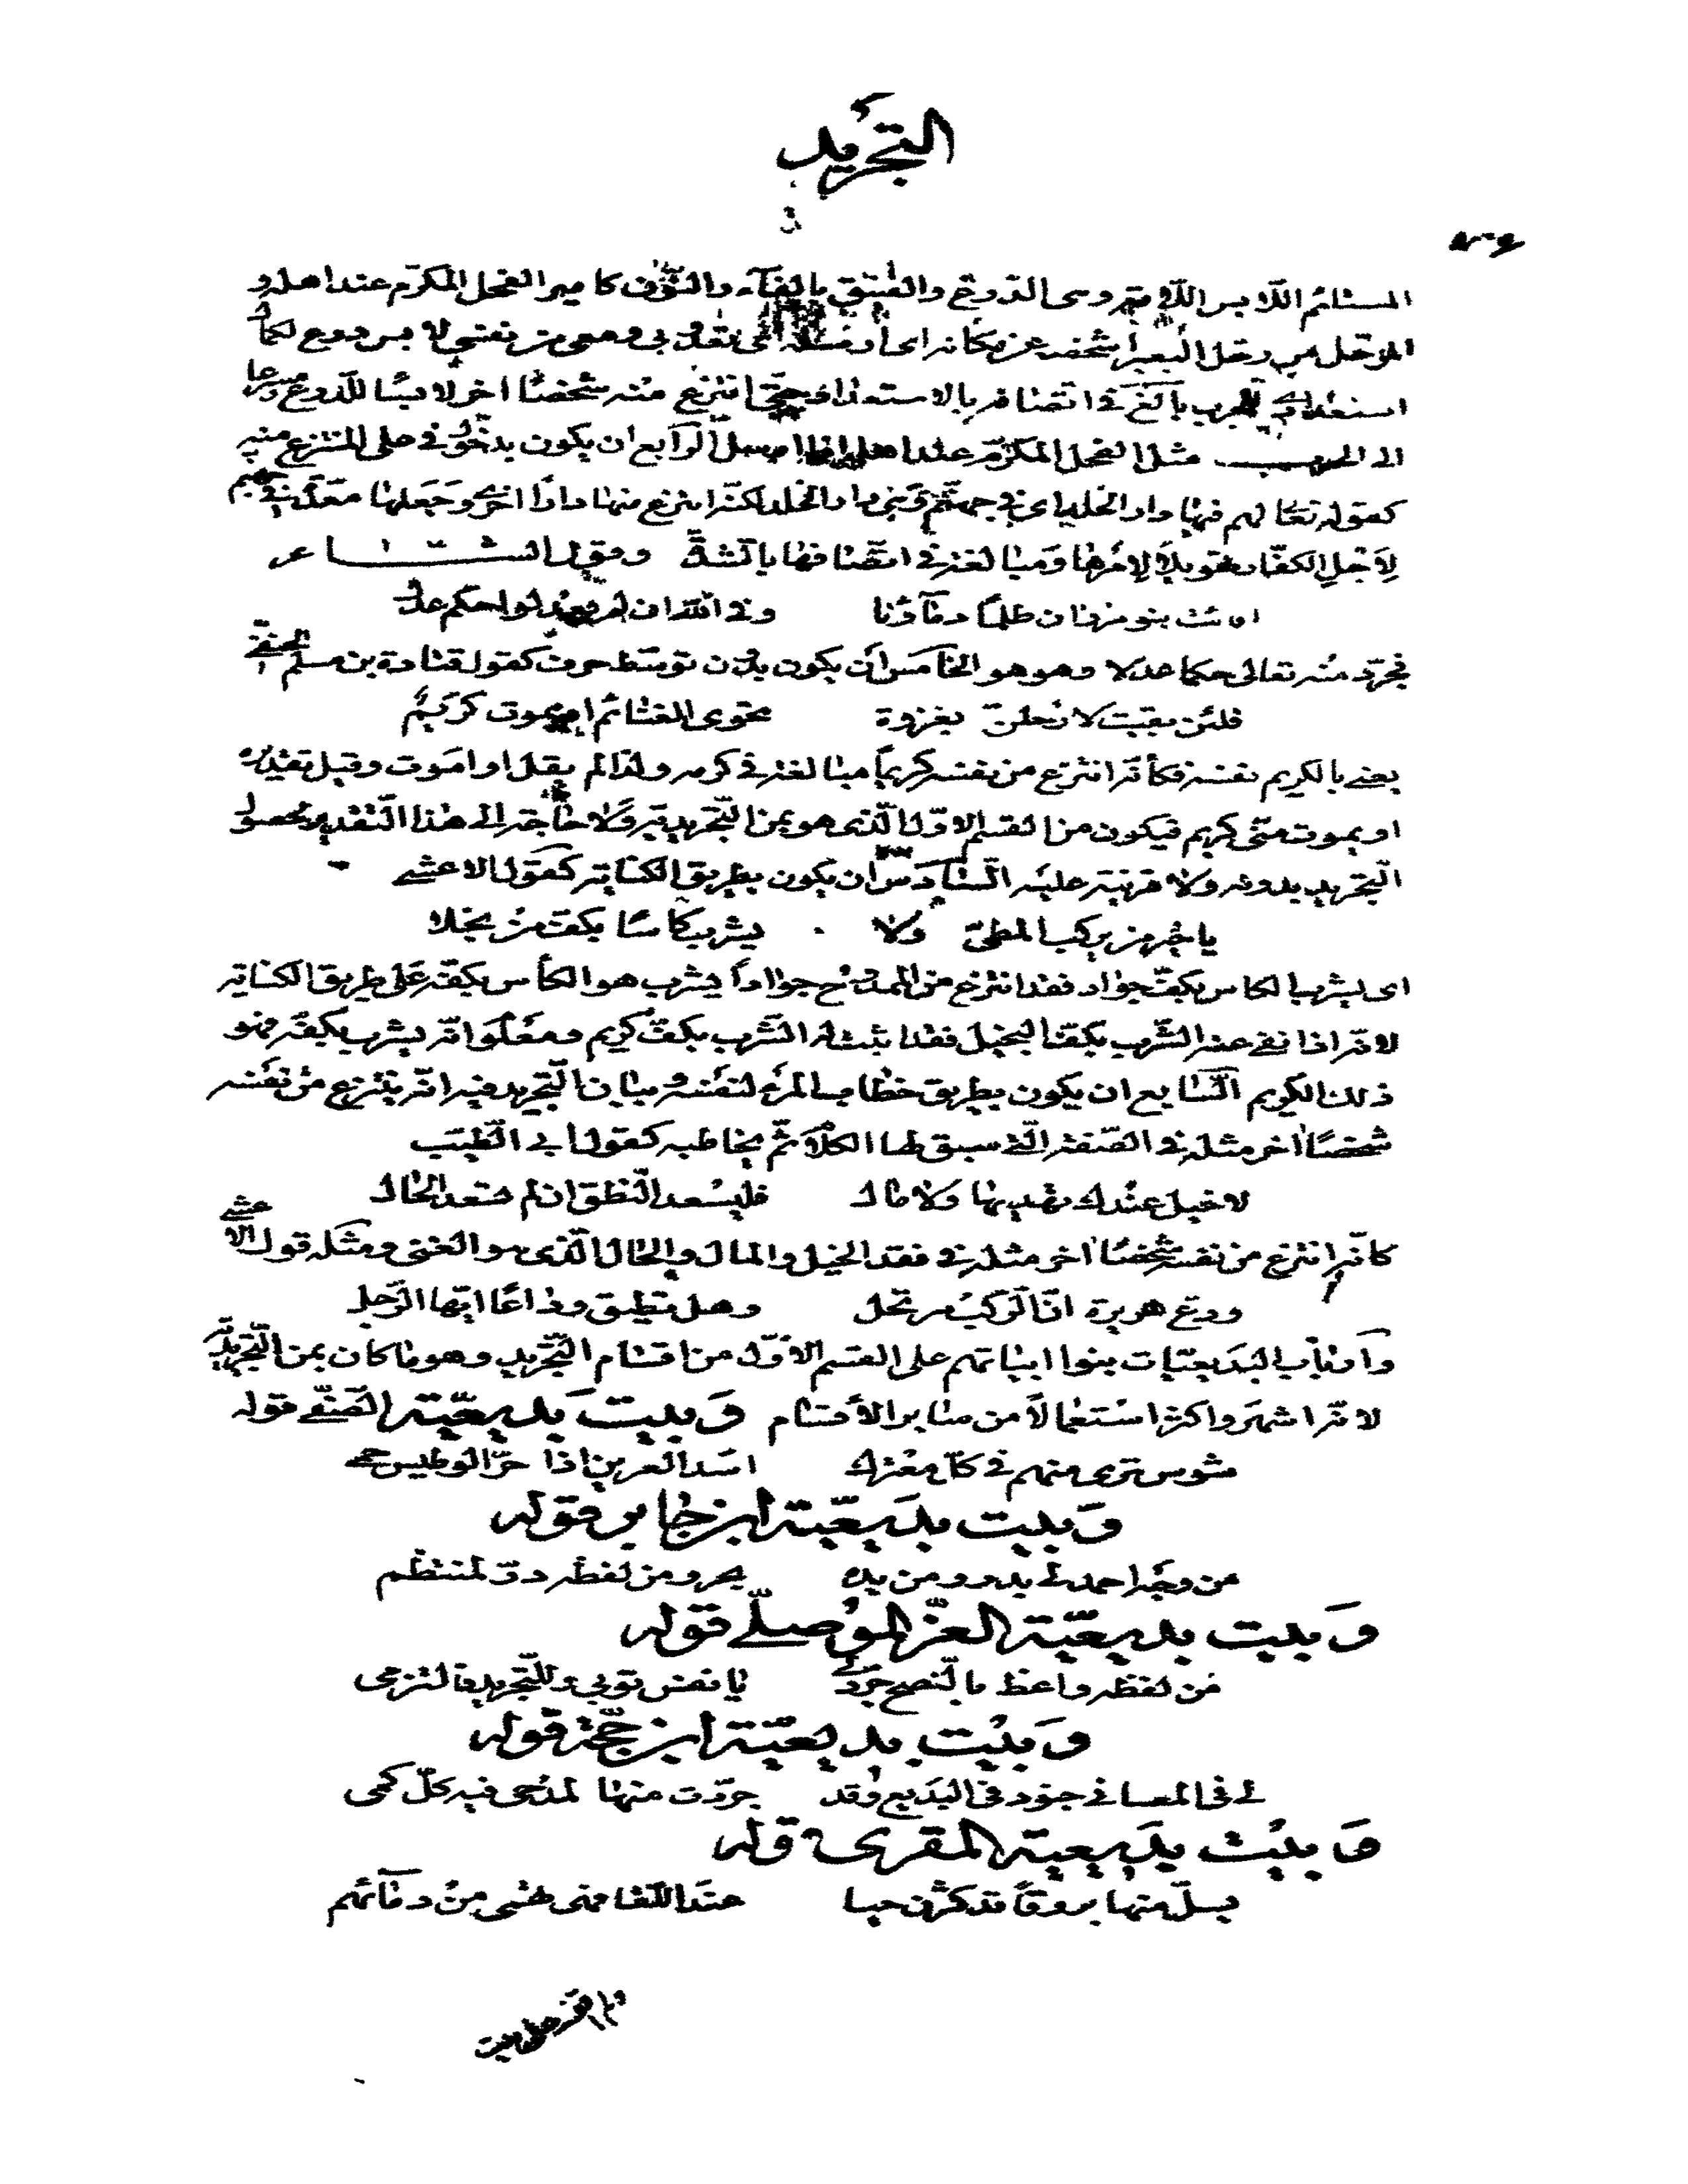 التجريد
المستلئم اللابس اللأمة وهى الدروع والفنيق بالفآء والنون كامير الفحل المكرم عند اهله و
المرحل من رحل البعير اشخصه عن مكانه اى ارسله اى تعدو بى ومعى من نفسى لابس دروع لكمال
استعداده للحرب بالغ فى اتصافه بالاستعداد حتى انتزع منه شخصًا اخر لابسًا للدروع مسرعا
الى الحرب مثل الفحل المكرم عند اهله اذا ارسل الرابع ان يكون بدخول فى على المنتزع منه
كقوله تعالى لهم فيها دار الخلد اى فى جهنم وهى دار الخلد لكنه انتزع منها دارًا اخرى وجعلها معدة فى جهنم
لاجل الكفار تهويلًا لامرها ومبالغة فى اتصافها بالشدة وقول الشاعر
افاءت بنو مروان ظلمًا دمآؤنا وفى الله ان لم يعدلوا حكم عدل
فجرد منه تعالى حكما عدلا وهو هو الخامس ان يكون بدون توسط حرف كقول قتادة بن مسلم الحنفى
فلئن بقيت لارحلن بغزوة تحوى الغنائم او يموت كريم
يعنى بالكريم نفسه فكأنه انتزع من نفسه كريمًا مبالغة فى كرمه ولذا لم يقل او اموت وقيل تقديره
او يموت منى كريم فيكون من القسم الاول الذى هو بمن التجريدية ولا حاجة الى هذا التقدير لحصول
التجريد بدونه ولا قرينة عليه السادس ان يكون بطريق الكناية كقول الاعشى
يا خير من يركب المطى ولا يشرب كأسًا بكف من بخلا
اى يشرب الكاس بكف جواد فقد انتزع من الممدوح جوادًا يشرب هو الكأس بكفه على طريق الكناية
لانه اذا نفى عنه الشرب بكف البخيل فقد اثبت له الشرب بكف كريم ومعلوم انه يشرب بكفه فهو
ذلك الكريم السابع ان يكون بطريق خطاب المرء لنفسه وبيان التجريد فيه انه ينتزع من نفسه
شخصًا اخر مثله فى الصفة التى سيق لها الكلام ثم يخاطبه كقول ابى الطيب
لا خيل عندك تهديها ولا مال فليسعد النطق ان لم تسعد الحال
كانه انتزع من نفسه شخصًا اخر مثله فى فقد الخيل والمال والحال الذى هو الغنى ومثله قول الاعشى
ودع هريرة ان الركب مرتحل وهل تطيق وداعًا ايها الرجل
وارباب البديعيات بنوا ابياتهم على القسم الاول من اقسام التجريد وهو ما كان بمن التجريدية
لانه اشهر واكثر استعمالًا من سابر الأقسام وبيت بديعية الصفى قوله
شوس ترى منهم فى كل معترك اسد العرين اذا حر الوطيس حمى
وبيت بديعية ابن جابر قوله
من وجه احمد لى بدر ومن يده بحر ومن لفظه در لمنتظم
وبيت بديعية العز الموصلى قوله
من لفظه واعظ بالنصح جرد لى يا نفس توبى وللتجريد فالتزمى
وبيت بديعية ابن حجة قوله
لى فى المعانى جنود فى البديع وقد جردت منها لمدحى فيه كل كمى
وبيت بديعية المقرى قوله
يسل منها بروقًا قد كثرن حيا عند اللقا فهى من دمآئهم